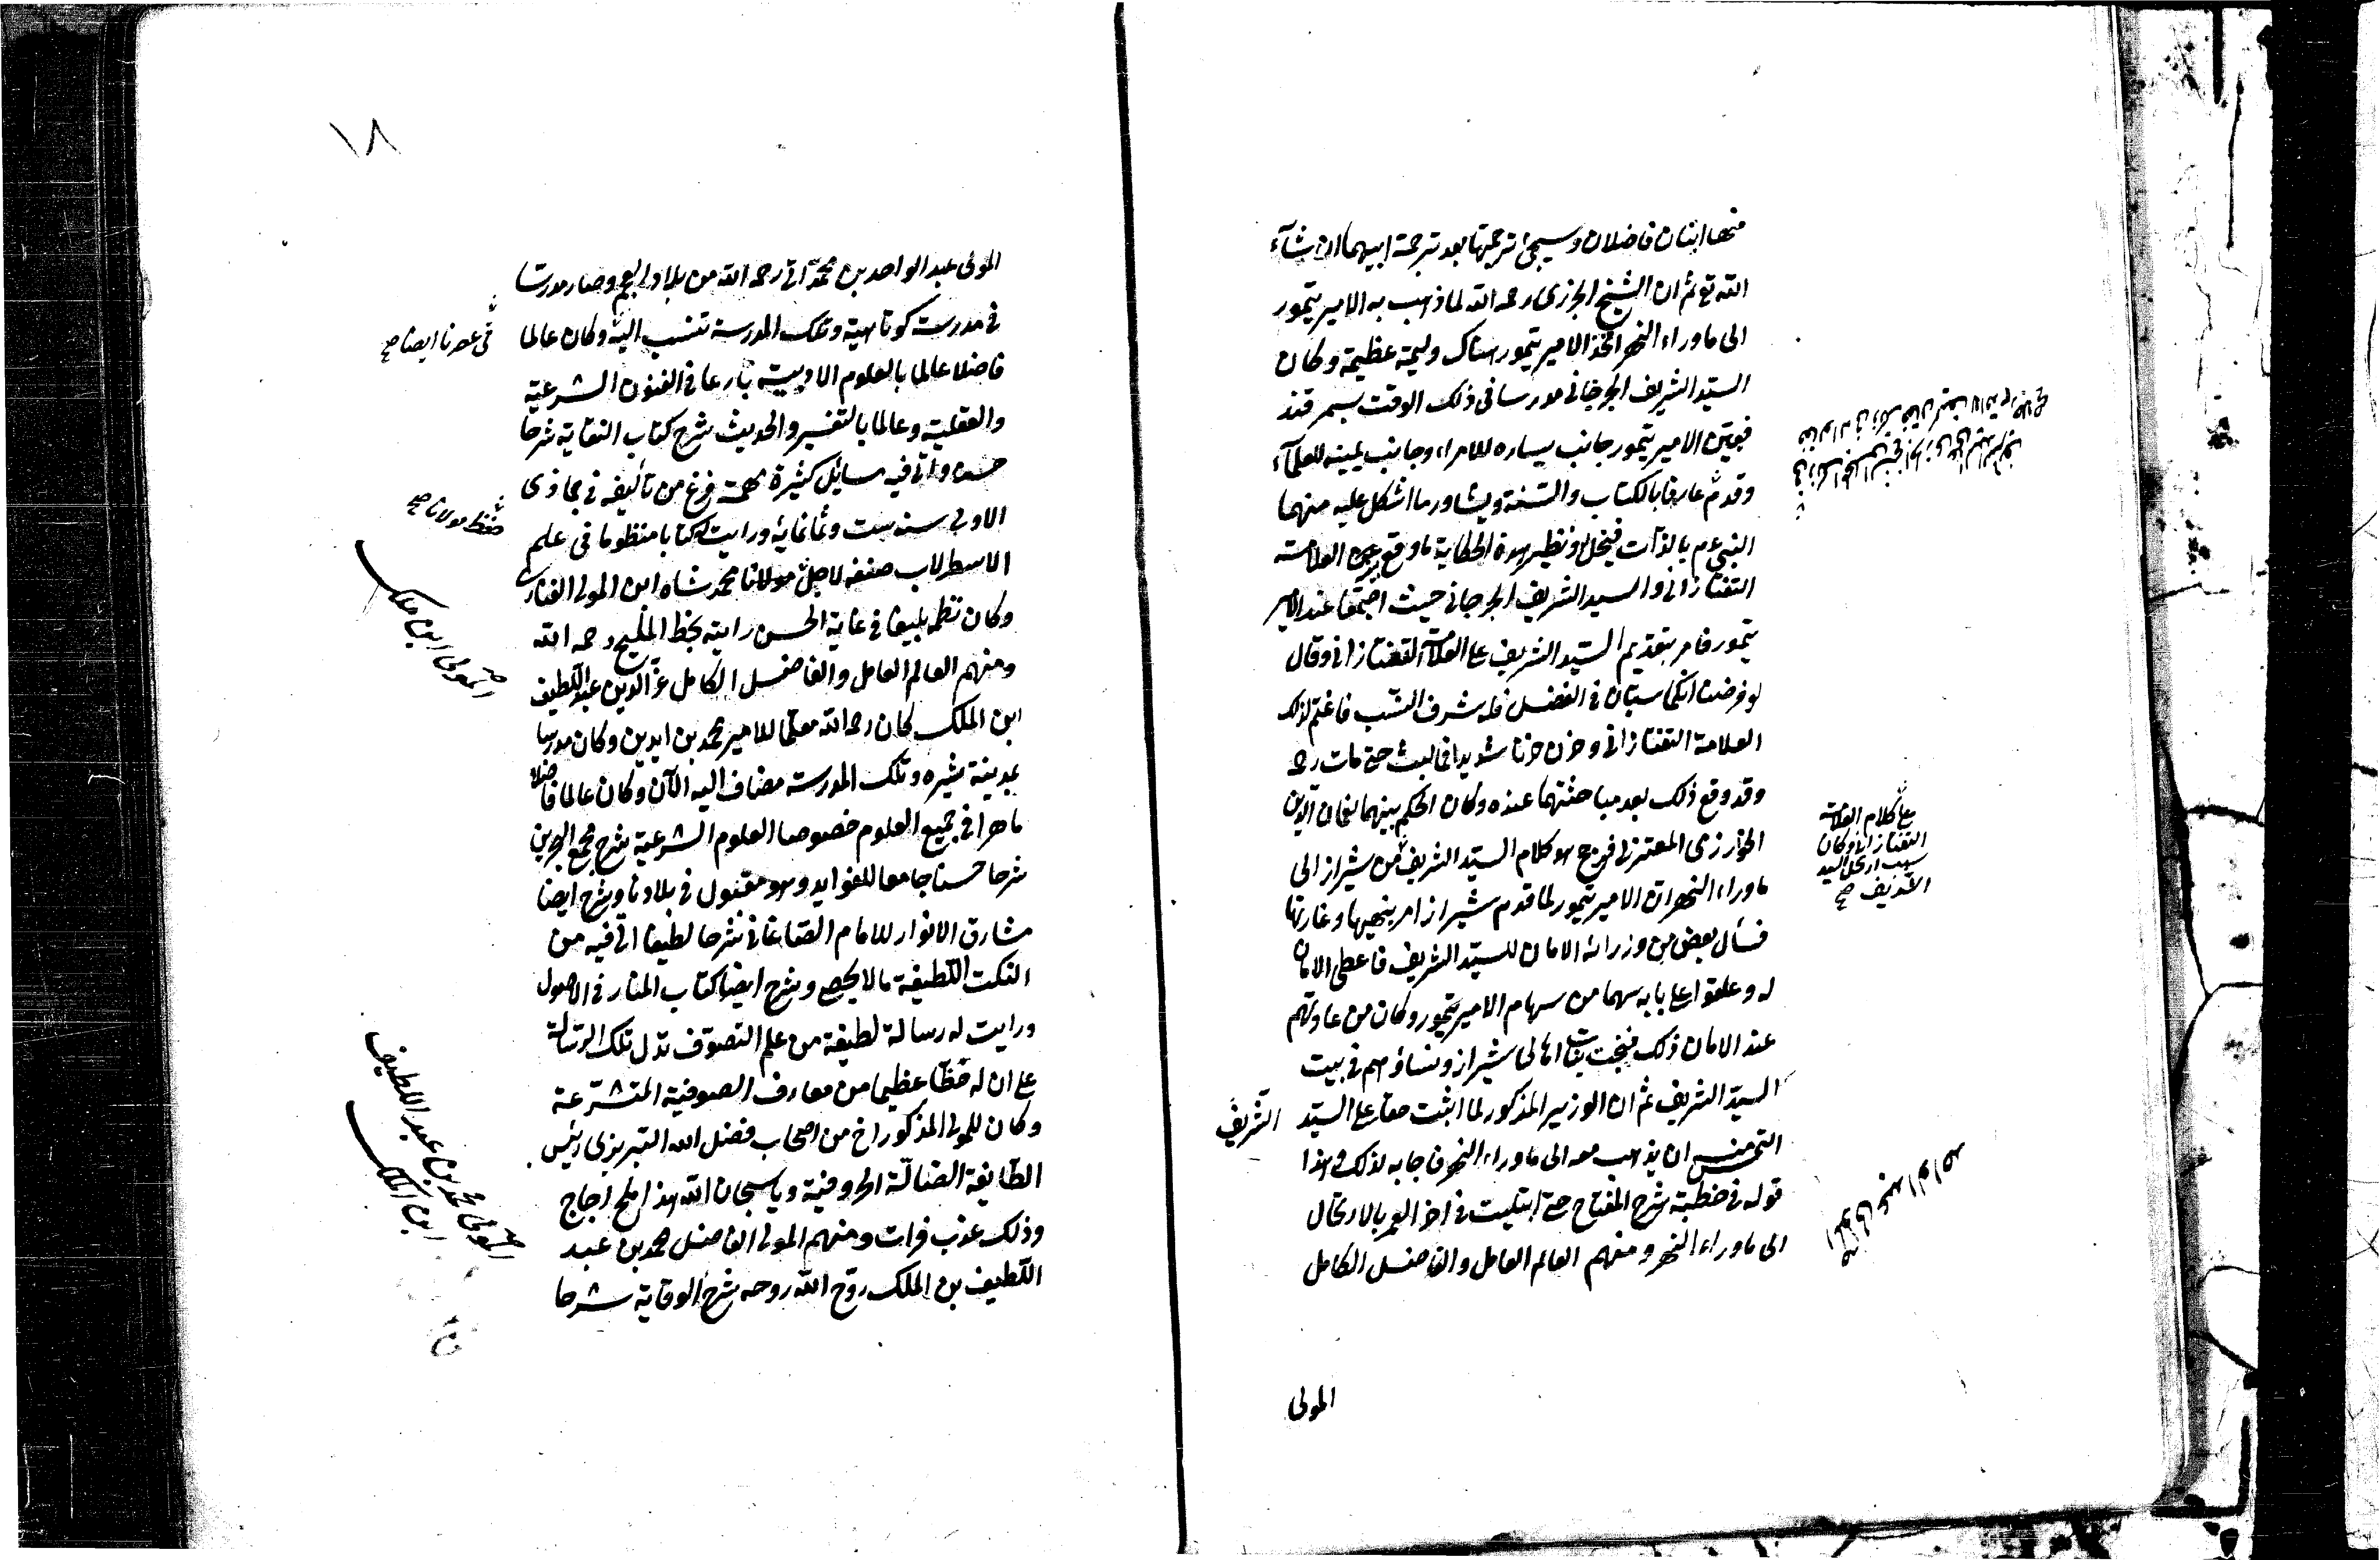 منها ابنان فاضلان وسيجئ ترجمتها بعد ترجمة ابيهما ان شآء
الله تع ثم ان الشيخ الجزرى رحمه الله لما ذهب به الامير تيمور
الى ماوراء النهر اتخذ الامير تيمور هناك وليمة عظيمة وكان
السيد الشريف الجرجانى مدرسا فى ذلك الوقت بسمرقند
فعين الامير تيمور جانب يساره للامراء وجانب يمينه للعلمآء
وقدم عارفا بالكتاب والسنة ويشاور ما اشكل عليه منهما
النبى عم بالذات فينحل ونظير هذه الحكاية ما وقع بين العلامة
التفتازانى والسيد الشريف الجرجانى حيث اجتمعا عند الامير
تيمور فامر بتقديم السيد الشريف على العلامة التفتازانى وقال
لو فرضنا انكما سيان فى الفضل فله شرف النسب فاغتم لذلك
العلامة التفتازانى وحزن حزنا شديدا فما لبث حتى مات رحمه
وقد وقع ذلك بعد مباحثتهما عنده وكان الحكم بينهما نعمان الدين
الخوارزمى المعتزلى فرجح هو كلام السيد الشريف من شيراز الى
ماوراء النهر ان الامير تيمور لما قدم شيراز امر بنهبها وغارتها
فسأل بعض من وزرائه الامان للسيد الشريف فاعطى الامان
له وعلقوا على بابه سهما من سهام الامير تيمور وكان من عادتهم
عند الامان ذلك فنجت بنات اهالى شيراز ونساؤهم فى بيت
السيد الشريف ثم ان الوزير المذكور لما اثبت حقا على السيد الشريف
التمس ان يذهب معه الى ماوراء النهر فاجابه لذلك وهذا
قوله فى خطبة شرح المفتاح حتى ابتليت فى اخر العمر بالارتحال
الى ماوراء النهر ومنهم العالم العامل والفاضل الكامل
على كلام العلامة
التفتازانى وكان
سبب ارتحال السيد
الشريف صح
المولى عبد الواحد
المولى
١٨
المولى عبد الواحد بن محمد اتى رحمه الله من بلاد العجم وصار مدرسا
فى مدرسة كوتاهية وتلك المدرسة تنسب اليه وكان عالما
فى عصرنا ايضا صح
فاضلا عالما بالعلوم الادبية بارعا فى الفنون الشرعية
والعقلية وعالما بالتفسير والحديث شرح كتاب النقاية شرحا
حسنا واتى فيه مسايل كثيرة مهمة فرغ من تأليفه فى جماذى
الاولى سنه ست وثمانمايه ورايت له كتابا منظوما فى علم
الاسطرلاب صنفه لاجل مولانا محمد شاه ابن المولى الفنارى
لحفظ مولانا صح
وكان نظمه بليغا فى غاية الحسن رايته بخطه المليح رحمه الله
ومنهم العالم العامل والفاضل الكامل عز الدين عبد اللطيف
المولى ابن ملك
ابن الملك كان رحمه الله معلما للامير محمد بن ايدين وكان مدرسا
بمدينة تيره وتلك المدرسة مضاف اليه الآن وكان عالما فاضلا
ماهرا فى جميع العلوم خصوصا العلوم الشرعية شرح مجمع البحرين
شرحا حسنا جامعا للفوايد وهو مقبول فى بلادنا وشرح ايضا
مشارق الانوار للامام الصغانى شرحا لطيفا اتى فيه من
النكت اللطيفة ما لا يحصى وشرح ايضا كتاب المنار فى الاصول
ورايت له رسالة لطيفة من علم التصوف تدل تلك الرسالة
على ان له حظا عظيما من معارف الصوفية المتشرعة
وكان للمولى المذكور اخ من اصحاب فضل الله التبريزى رئيس
الطايفة الضالة الحروفية ويا سبحان الله هذا ملح اجاج
وذلك عذب فرات ومنهم المولى الفاضل محمد بن عبد
اللطيف بن الملك روح الله روحه شرح الوقاية شرحا
المولى محمد بن عبد اللطيف
ابن الملك